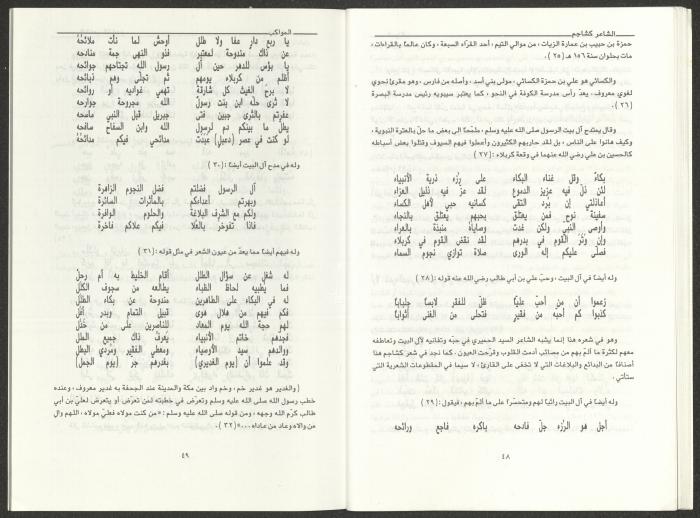 الشاعر كشاجم
حمزة بن حبيب بن عمارة الزيات، من موالي التيم، أحد القرّاء السبعة، وكان عالمًا بالقراءات،
مات بحلوان سنة ١٥٦ هـ (٢٥).
والكسائي هو علي بن حمزة الكسائي، مولى بني أسد، وأصله من فارس، وهو مقرئ نحوي
لغوي معروف، يعدّ رأس مدرسة الكوفة في النحو، كما يعتبر سيبويه رئيس مدرسة البصرة
(٢٦).
وقال يمتدح آل بيت الرسول صلى الله عليه وسلم، ملمّحًا الى بعض ما حلّ بالعترة النبوية،
وكيف هانوا على الناس، بل لقد حاربهم الكثيرون وأعطوا فيهم السيوف وقتلوا بعض أسباطه
كالحسين بن علي رضي الله عنهما في وقعة كربلاء: (٢٧)
بكاءٌ وقل غناء البكاء على رزء ذرية الأنبياء
لئن ذلّ فيه عزيز الدموع لقد عزّ فيه ذليل العزاء
أعاذلتي إن برد التقى كسانيه حبي لأهل الكساء
سفينة نوح فمن يعتلق بحبهم يعتلق بالنجاء
وأوصى النبي ولكن غدت وصاياه منبذة بالعراء
وإن وتر القوم في بدرهم لقد نقض القوم في كربلاء
فصلى عليكم إله الورى صلاة توازي نجوم السماء
وله أيضًا في آل البيت، وحبّ علي بن أبي طالب رضي الله عنه قوله: (٢٨)
زعموا أن من أحبّ عليًا ظلّ للفقر لابسًا جلبابا
كذبوا كم أحبه من فقير فتحلى من الغنى أثوابا
وهو في شعره هذا إنما يشبه الشاعر السيد الحميري في حبّه وتفانيه لآل البيت وتعاطفه
معهم لكثرة ما ألمّ بهم من مصائب أدمت القلوب وقرّحت العيون. كما نجد في شعر كشاجم هذا
أصنافًا من البدائع والبلاغات التي لا تخفى على القارئ، لا سيما في المقطوعات الشعرية التي
ستأتي.
وله أيضًا في آل البيت راثيًا لهم ومتحسّرًا على ما ألمّ بهم، فيقول: (٢٩)
أجل هو الرّزء جلّ فادحه باكره فاجع ورائحه
٤٨
المواكب
يا ربع دار عفا ولا طلل أوحش لما نأت ملائحه
عن ذاك مندوحة لمعتبر فنو النهى جمة منادحه
يا بؤس للدهر حين آل رسول الله تجتاحهم جوائحه
أظلم من كربلاء يومهم ثم تجلّى وهم ذبائحه
لا برح الغيث كل شارقة تهمي غواديه أو روائحه
لا ثرى حلّه ابن بنت رسول الله مجروحة جوارحه
عفرتم بالثرى جبين فتى جبريل قبل النبي ماسحه
يطلّ ما بينكم دم لرسول الله وابن السفاح سافحه
لو كنت في عصر (دعبل) عبدت مدائحي فيكم مدائحه
وله في مدح آل البيت أيضًا: (٣٠)
آل الرسول فضلتم فضل النجوم الزاهرة
وبهرتم أعداءكم بالمأثرات السائرة
ولكم مع الشرف البلاغة والحلوم الوافرة
فاذا تفوخر بالعلا فيكم علاكم فاخرة
وله فيهم أيضًا مما يعدّ من عيون الشعر في مثل قوله: (٣١)
له شغل عن سؤال الطلل أقام الخليط به أم رحل
فما يطبيه لحاظ الظباء يطالعه من سجوف الكلل
له في البكاء على الطاهرين مندوحة عن بكاء الطلل
فكم فيهم من هلال هوى قبيل التمام وبدر أفل
لهو حجة الله يوم المعاد للناصرين على من خذل
فجدهم خاتم الأنبياء يعرف ذاك جميع الملل
ووالدهم سيد الأوصياء ومعطي الفقير ومردي البطل
وقد علموا أن (يوم الغديري) بغدرهم جر (يوم الجمل)
(والغدير هو غدير خم، وخم واد بين مكة والمدينة عند الجحفة به غدير معروف، وعنده
خطب رسول الله صلى الله عليه وسلم وتعرّض في خطبته لمن تعرّض أو يتعرض لعلي بن أبي
طالب كرّم الله وجهه، ومن قوله صلى الله عليه وسلم: «من كنت مولاه فعليّ مولاه، اللهم وال
من والاه وعاد من عاداه...» (٣٢).
٤٩